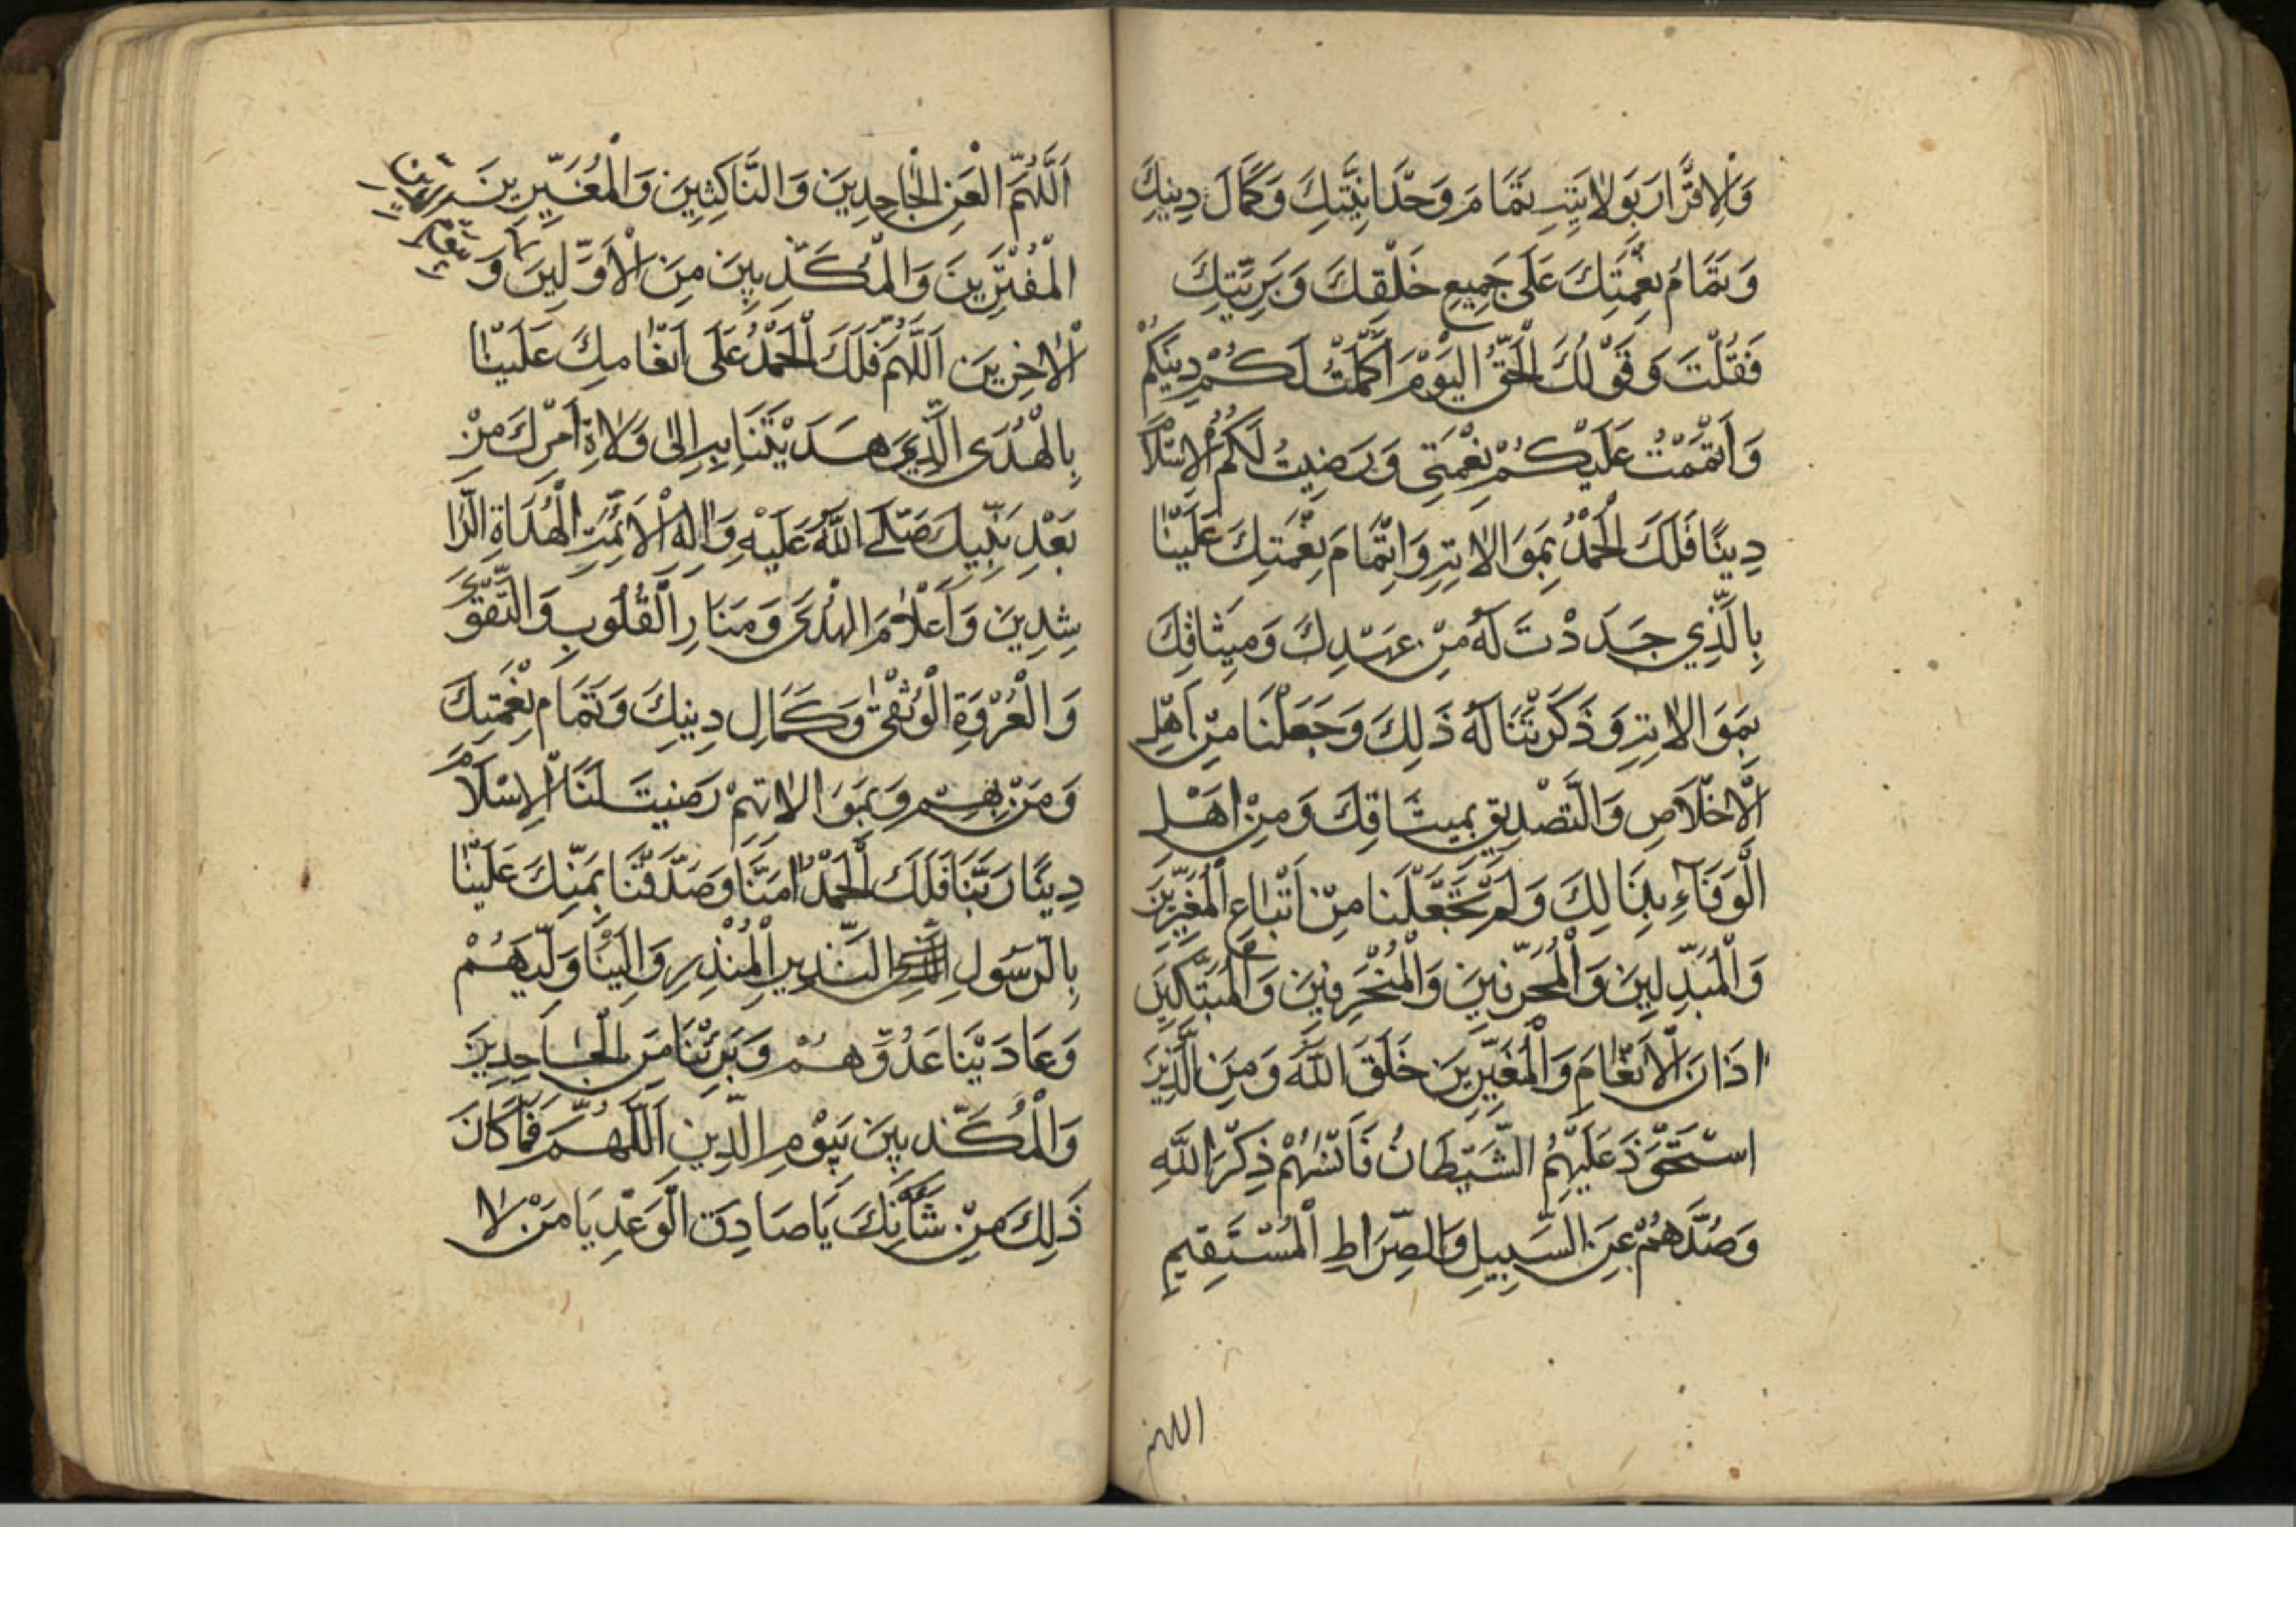 وَالْاِقْرَارَ بِوَلَايَتِهِ تَمَامَ وَحْدَانِيَّتِكَ وَكَمَالَ دِينِكَ
وَتَمَامَ نِعْمَتِكَ عَلَى جَمِيعِ خَلْقِكَ وَبَرِيَّتِكَ
فَقُلْتَ وَقَوْلُكَ الْحَقُّ الْيَوْمَ اَكْمَلْتُ لَكُمْ دِينَكُمْ
وَاَتْمَمْتُ عَلَيْكُمْ نِعْمَتِي وَرَضِيتُ لَكُمُ الْاِسْلَامَ
دِينًا فَلَكَ الْحَمْدُ بِمَوَالَاتِهِ وَاِتْمَامَ نِعْمَتِكَ عَلَيْنَا
بِالَّذِي جَدَدْتَ لَهُ مِنْ عَهْدِكَ وَمِيثَاقِكَ
بِمَوَالَاتِهِ وَذَكَرْتَنَا لَهُ ذَلِكَ وَجَعَلْنَا مِنْ اَهْلِ
الْاِخْلَاصِ وَالتَّصْدِيقِ بِمِيثَاقِكَ وَمِنْ اَهْلِ
الْوَفَاۤءِ بِذَالِكَ وَلَمْ تَجْعَلْنَا مِنْ اَتْبَاعِ الْمُغَيِّرِينَ
وَالْمُبَدِّلِينَ وَالْمُحَرِّفِينَ وَالْمُنْحَرِفِينَ وَالْمُبَتِّكِينَ
اذَانَ الْاَنْعَامِ وَالْمُغَيِّرِينَ خَلَقَ اللّٰهَ وَمِنَ الَّذِينَ
اسْتَحْوَذَ عَلَيْهِمُ الشَّيْطَانُ فَاَنْسٰهُمْ ذِكْرَ اللّٰهِ
وَصُدَّهُمْ عَنِ السَّبِيلِ وَالصِّرَاطِ الْمُسْتَقِيمِ
اللهم
اَللّٰهُمَّ الْعَنِ الْجَاحِدِينَ وَالنَّاكِثِينَ وَالْمُغَيِّرِينَ
الْمُفْتَرِينَ وَالْمُكَذِّبِينَ مِنَ الْاَوَّلِينَ وَ
الْاٰخِرِينَ اَللّٰهُمَّ فَلَكَ الْحَمْدُ عَلَى اَنْعَامِكَ عَلَيْنَا
بِالْهُدَى الَّذِي هَدَيْتَنَا بِهِ اِلٰى وَلَاةِ اَمْرِكَ مِنْ
بَعْدِ نَبِيِّكَ صَلَّى اللّٰهُ عَلَيْهِ وَاٰلِهِ الْاَئِمَّةِ الْهُدَاةِ الرَّا
شِدِينَ وَاَعْلَامَ الْهُدَى وَمَنَارِ الْقُلُوبِ وَالتَّقْوَى
وَالْعُرْوَةِ الْوُثْقَىٰ وَكَمَالِ دِينِكَ وَتَمَامِ نِعْمَتِكَ
وَمَنْ بِهِمْ وَبِمَوَالَاتِهِمْ رَضِيتَ لَنَا الْاِسْلَامَ
دِينًا رَبَّنَا فَلَكَ الْحَمْدُ اٰمَنَّا وَصَدَّقْنَا بِمَنِّكَ عَلَيْنَا
بِالرَّسُولِ النَّذِيرِ الْمُنْذِرِ وَالَيْنَا وَلِيَّهُمْ
وَعَادَيْنَا عَدُوَّهُمْ وَبَرِئْنَا مِنَ الْجَاحِدِينَ
وَالْمُكَذِّبِينَ بِيَوْمِ الدِّينِ اَللّٰهُمَّ فَمَا كَانَ
ذَلِكَ مِنْ شَاْنِكَ يَا صَادِقَ الْوَعْدِ يَا مَنْ لَا